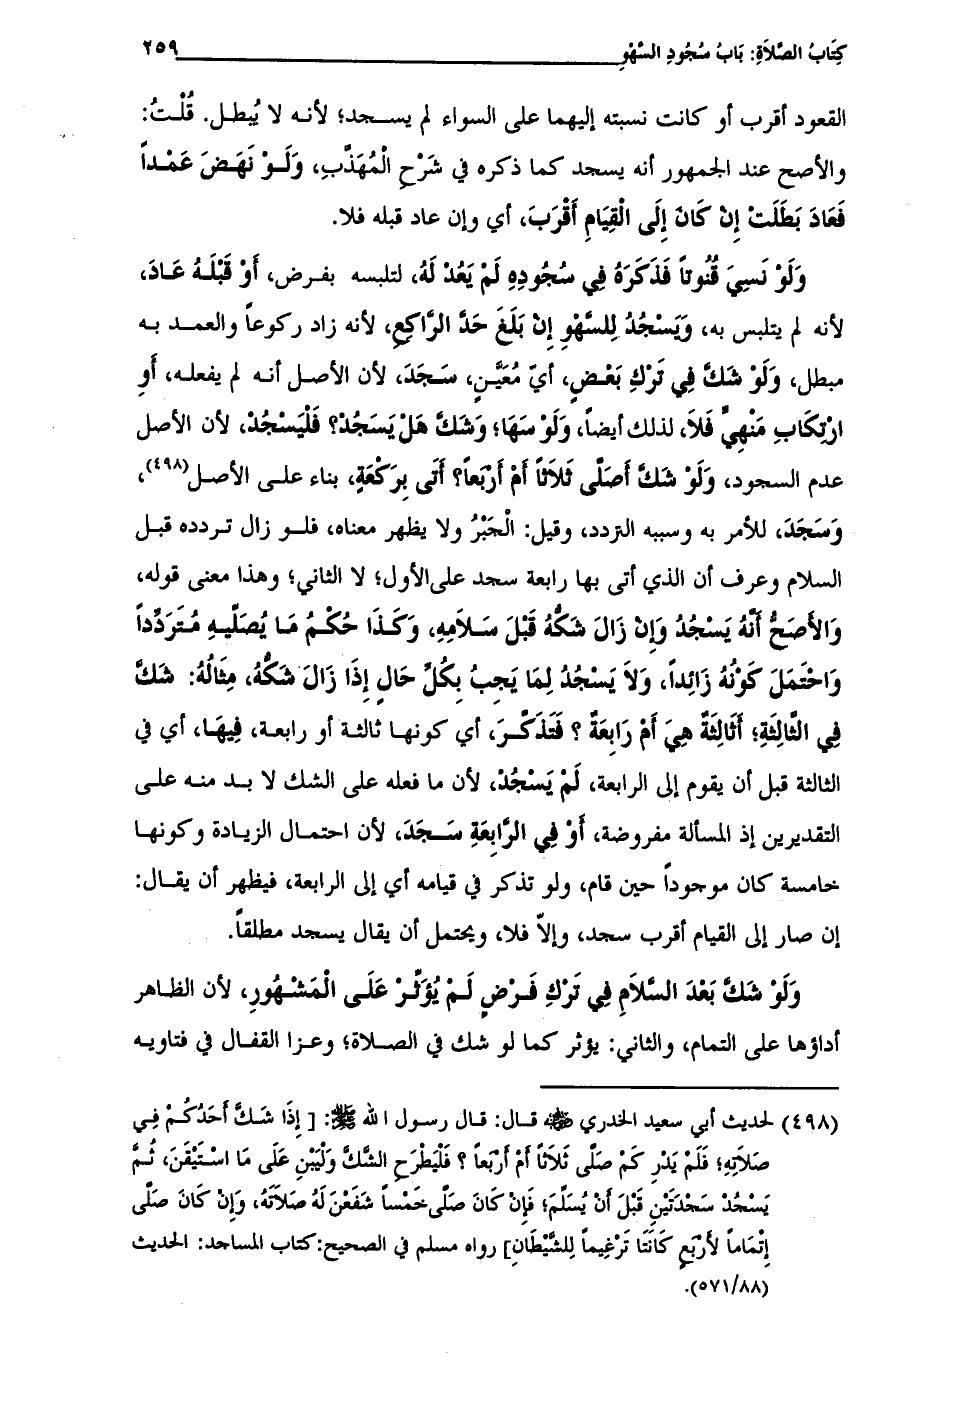 كِتَابُ الصَّلاَةِ: بَابُ سُجُودِ السَّهْوِ ٢٥٩
القعود أقرب أو كانت نسبته إليهما على السواء لم يســجد؛ لأنـه لا يُبطـل. قُلْتُ:
والأصح عند الجمهور أنه يسجد كما ذكره في شَرْحِ الْمُهَذَّبِ، وَلَـوْ نَهَضَ عَمْـداً
فَعَادَ بَطَلَتْ إِنْ كَانَ إِلَى الْقِيَامِ أَقْرَبَ، أي وإن عاد قبله فلا.
وَلَوْ نَسِيَ قُنُوتاً فَذَكَرَهُ فِي سُجُودِهِ لَمْ يَعُدْ لَهُ، لتلبسه بفـرض، أَوْ قَبْلَـهُ عَـادَ،
لأنه لم يتلبس به، وَيَسْجُدُ لِلسَّهْوِ إِنْ بَلَغَ حَدَّ الرَّاكِعِ، لأنه زاد ركوعاً والعمـد بـه
مبطل، وَلَوْ شَكَّ فِي تَرْكِ بَعْـضٍ، أيّ مُعَيَّنٍ، سَـجَدَ، لأن الأصـل أنـه لم يفعلـه، أَوِ
ارْتِكَابِ مَنْهِيٍّ فَلاَ، لذلك أيضاً، وَلَوْ سَهَا؛ وَشَكَّ هَلْ يَسَجُدُ؟ فَلْيَسْجُدْ، لأن الأصل
عدم السجود، وَلَوْ شَكَّ أَصَلَّى ثَلاَثاً أَمْ أَرْبَعاً؟ أَتَى بِرَكْعَةٍ، بناء علـى الأصـل(٤٩٨)،
وَسَجَدَ، للأمر به وسببه التردد، وقيل: الْخَبْرُ ولا يظهر معناه، فلـو زال تـردده قبـل
السلام وعرف أن الذي أتى بها رابعة سجد على الأول؛ لا الثاني؛ وهذا معنى قوله،
وَالأَصَحُّ أَنَّهُ يَسْجُدُ وَإِنْ زَالَ شَكُّهُ قَبْلَ سَـلاَمِهِ، وَكَـذَا حُكْـمُ مَـا يُصَلِّيـهِ مُتَرَدِّداً
وَاحْتَمَلَ كَوْنُهُ زَائِداً، وَلاَ يَسْجُدُ لِمَا يَجِبُ بِكُلِّ حَالٍ إِذَا زَالَ شَكُّهُ، مِثَالُهُ: شَكَّ
فِي الثَّالِثَةِ؛ أَثَالِثَةٌ هِيَ أَمْ رَابِعَةٌ ؟ فَتَذَكَّـرَ، أي كونهـا ثالثـة أو رابعـة، فِيهَـا، أي في
الثالثة قبل أن يقوم إلى الرابعة، لَمْ يَسْجُدْ، لأن ما فعله على الشك لا بـد منـه علـى
التقديرين إذ المسألة مفروضة، أَوْ فِي الرَّابِعَةِ سَـجَدَ، لأن احتمـال الزيـادة وكونهـا
خامسة كان موجوداً حين قام، ولو تذكر في قيامه أي إلى الرابعة، فيظهر أن يقـال:
إن صار إلى القيام أقرب سجد، وإلاّ فلا، ويحتمل أن يقال يسجد مطلقاً.
وَلَوْ شَكَّ بَعْدَ السَّلاَمِ فِي تَرْكِ فَـرْضٍ لَـمْ يُؤَثِّـرْ عَلَـى الْمَشْـهُورِ، لأن الظـاهر
أداؤها على التمام، والثاني: يؤثر كما لو شك في الصـلاة؛ وعـزا القفال في فتاويـه
(٤٩٨) لحديث أبي سعيد الخدري ﷺ قـال: قـال رسـول الله ﷺ: [ إِذَا شَـكَّ أَحَدُكُـمْ فِـي
صَلاَتِهِ؛ فَلَمْ يَدْرِ كَمْ صَلَّى ثَلاَثاً أَمْ أَرْبَعاً ؟ فَلْيَطْرَحِ الشَّكَّ وَلْيَبْنِ عَلَى مَا اسْـتَيْقَنَ، ثُـمَّ
يَسْجُدْ سَجْدَتَيْنِ قَبْلَ أَنْ يُسَلِّمَ؛ فَإِنْ كَانَ صَلَّى خَمْساً شَفَعْنَ لَهُ صَلاَتَهُ، وَإِنْ كَانَ صَلَّى
إِتْمَاماً لأَرْبَعٍ كَانَتَا تَرْغِيماً لِلشَّيْطَانِ] رواه مسلم في الصحيح:كتاب المساجد: الحديث
(٥٧١/٨٨).